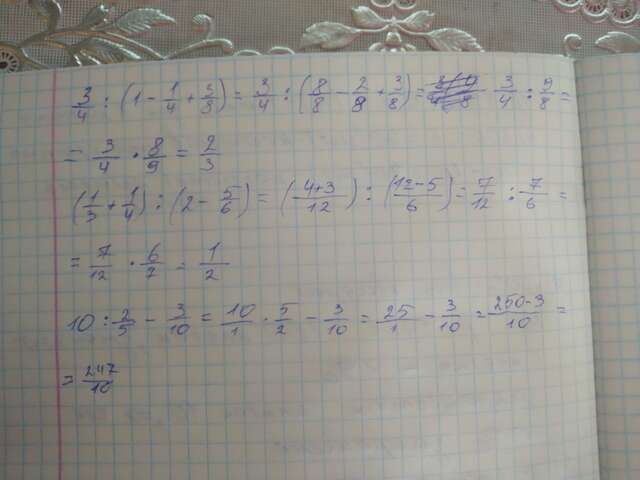 3/4 : (1 - 1/4 + 3/8) = 3/4 : (8/8 - 2/8 + 3/8) = 3/4 : 9/8 =
= 3/4 · 8/9 = 2/3
(1/3 + 1/4) : (2 - 5/6) = (4+3/12) : (12-5/6) = 7/12 : 7/6 =
= 7/12 · 6/7 = 1/2
10 : 2/5 - 3/10 = 10/1 · 5/2 - 3/10 = 25/1 - 3/10 = 250-3/10 =
= 247/10